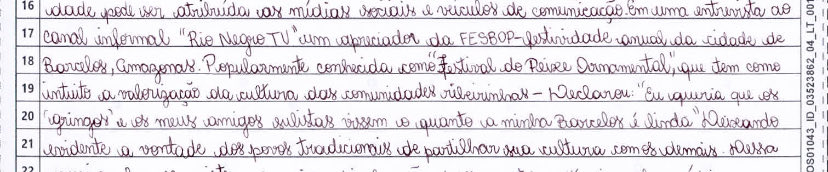 16 idade pode ser atribuída as mídias sociais e veículos de comunicação. Em uma entrevista ao
17 canal informal "Rio Negro TV" um apreciador da FESBOP-festividade anual da cidade de
18 Barcelos, Amazonas. Popularmente conhecida como "Festival do Peixe Ornamental", que tem como
19 intuito a valorização da cultura das comunidades ribeirinhas - Declarou: "Eu queria que os
20 "gringos" e os meus amigos sulistas vissem o quanto a minha Barcelos é linda" Deixando
21 evidente a vontade dos povos tradicionais de partilhar sua cultura com os demais. Dessa
22
OS01043_ID_03523862_04_LT_001